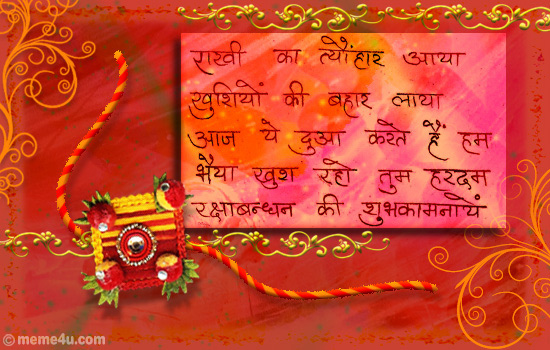 राखी का त्यौंहार आया
खुशियों की बहार लाया
आज ये दुआ करते हैं हम
भैया खुश रहो तुम हरदम
रक्षाबन्धन की शुभकामनायें
© meme4u.com